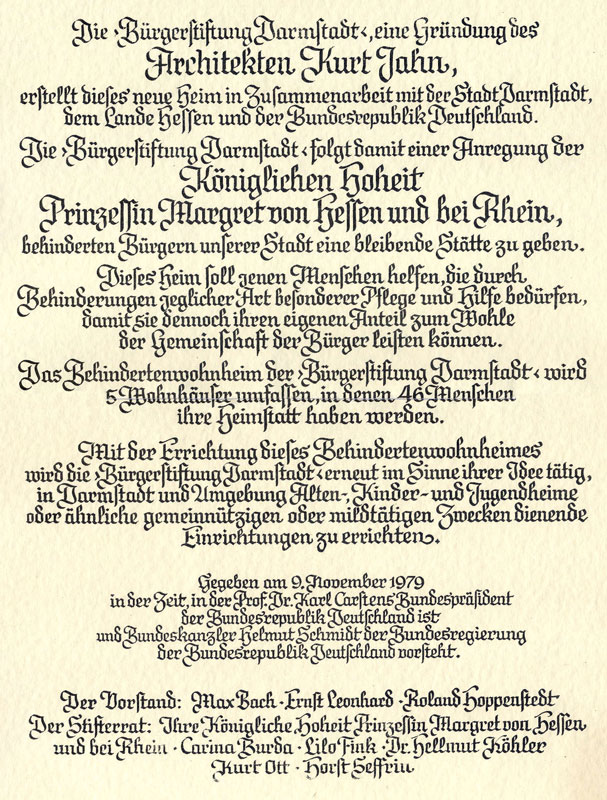 Die ›Bürgerstiftung Darmstadt‹, eine Gründung des
Architekten Kurt Jahn,
erstellt dieses neue Heim in Zusammenarbeit mit der Stadt Darmstadt,
dem Lande Hessen und der Bundesrepublik Deutschland.
Die ›Bürgerstiftung Darmstadt‹ folgt damit einer Anregung der
Königlichen Hoheit
Prinzessin Margret von Hessen und bei Rhein,
behinderten Bürgern unserer Stadt eine bleibende Stätte zu geben.
Dieses Heim soll jenen Menschen helfen, die durch
Behinderungen jeglicher Art besonderer Pflege und Hilfe bedürfen,
damit sie dennoch ihren eigenen Anteil zum Wohle
der Gemeinschaft der Bürger leisten können.
Das Behindertenwohnheim der ›Bürgerstiftung Darmstadt‹ wird
5 Wohnhäuser umfassen, in denen 46 Menschen
ihre Heimstatt haben werden.
Mit der Errichtung dieses Behindertenwohnheimes
wird die ›Bürgerstiftung Darmstadt‹ erneut im Sinne ihrer Idee tätig,
in Darmstadt und Umgebung Alten-, Kinder- und Jugendheime
oder ähnliche gemeinnützigen oder mildtätigen Zwecken dienende
Einrichtungen zu errichten.
Gegeben am 9. November 1979
in der Zeit, in der Prof. Dr. Karl Carstens Bundespräsident
der Bundesrepublik Deutschland ist
und Bundeskanzler Helmut Schmidt der Bundesregierung
der Bundesrepublik Deutschland vorsteht.
Der Vorstand: Max Bach · Ernst Leonhard · Roland Hoppenstedt
Der Stifterrat: Ihre Königliche Hoheit Prinzessin Margret von Hessen
und bei Rhein · Carina Burda · Lilo Fink · Dr. Hellmut Köhler
Kurt Ott · Horst Seffrin